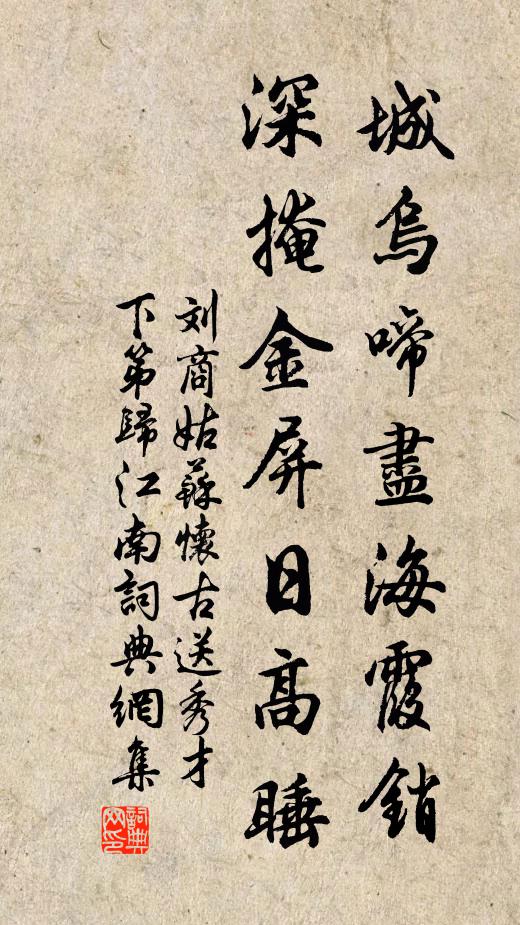 城烏啼盡海霞銷
深掩金屏日高睡
刘商姑蘇懷古送秀才
下第歸江南詞典網集
詞典
网印